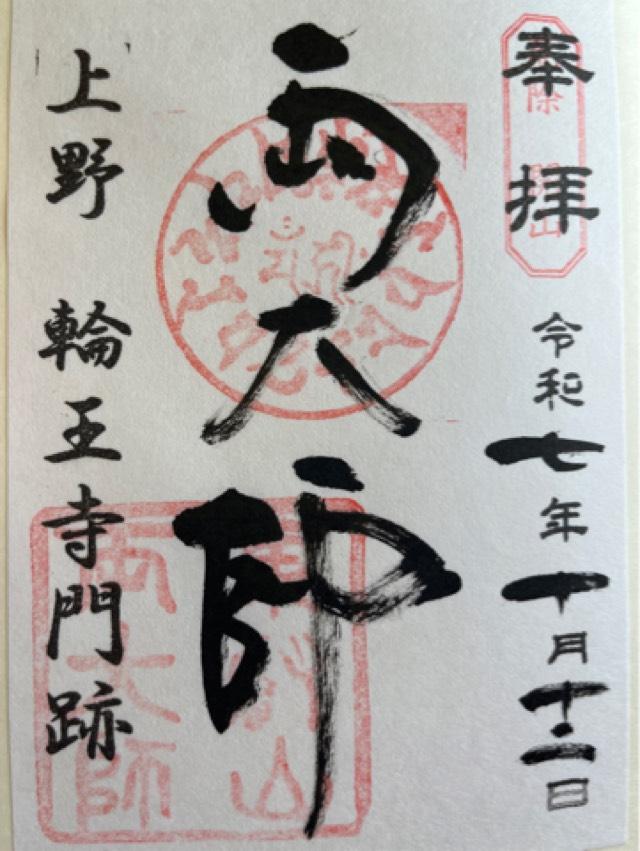 奉拝
令和七年十月十二日
両大師
上野 輪王寺門跡
東叡山
両大師